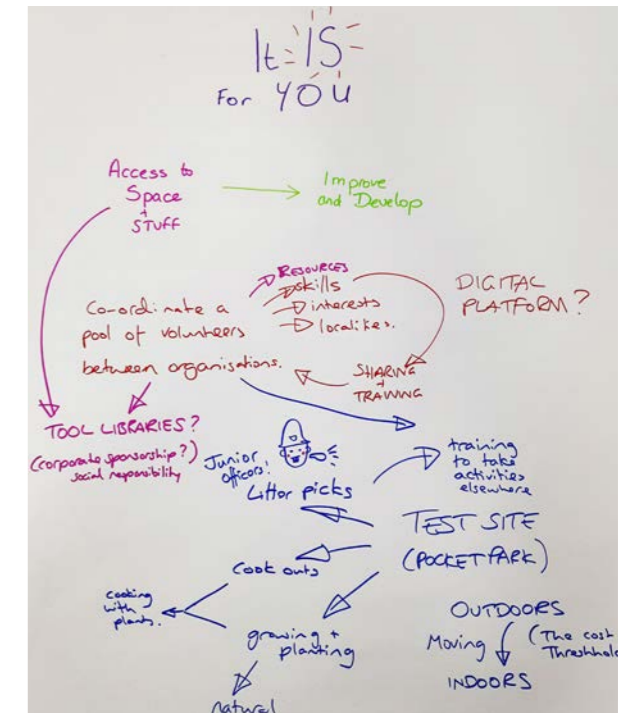 It IS
For YOU
Access to
Space
+
STUFF
Improve
and Develop
Co-ordinate a
pool of volunteers
between organisations.
RESOURCES
skills
interests
localities.
DIGITAL
PLATFORM?
SHARING
+
TRAINING
TOOL LIBRARIES?
(corporate sponsorship?)
social responsibility
Junior
officers!
Litter picks
training
to take
activities
elsewhere
TEST SITE
(POCKET PARK)
Cook outs
cooking
with
plants.
growing +
planting
natural
OUTDOORS
Moving
(The cost
Threshhol
INDOORS